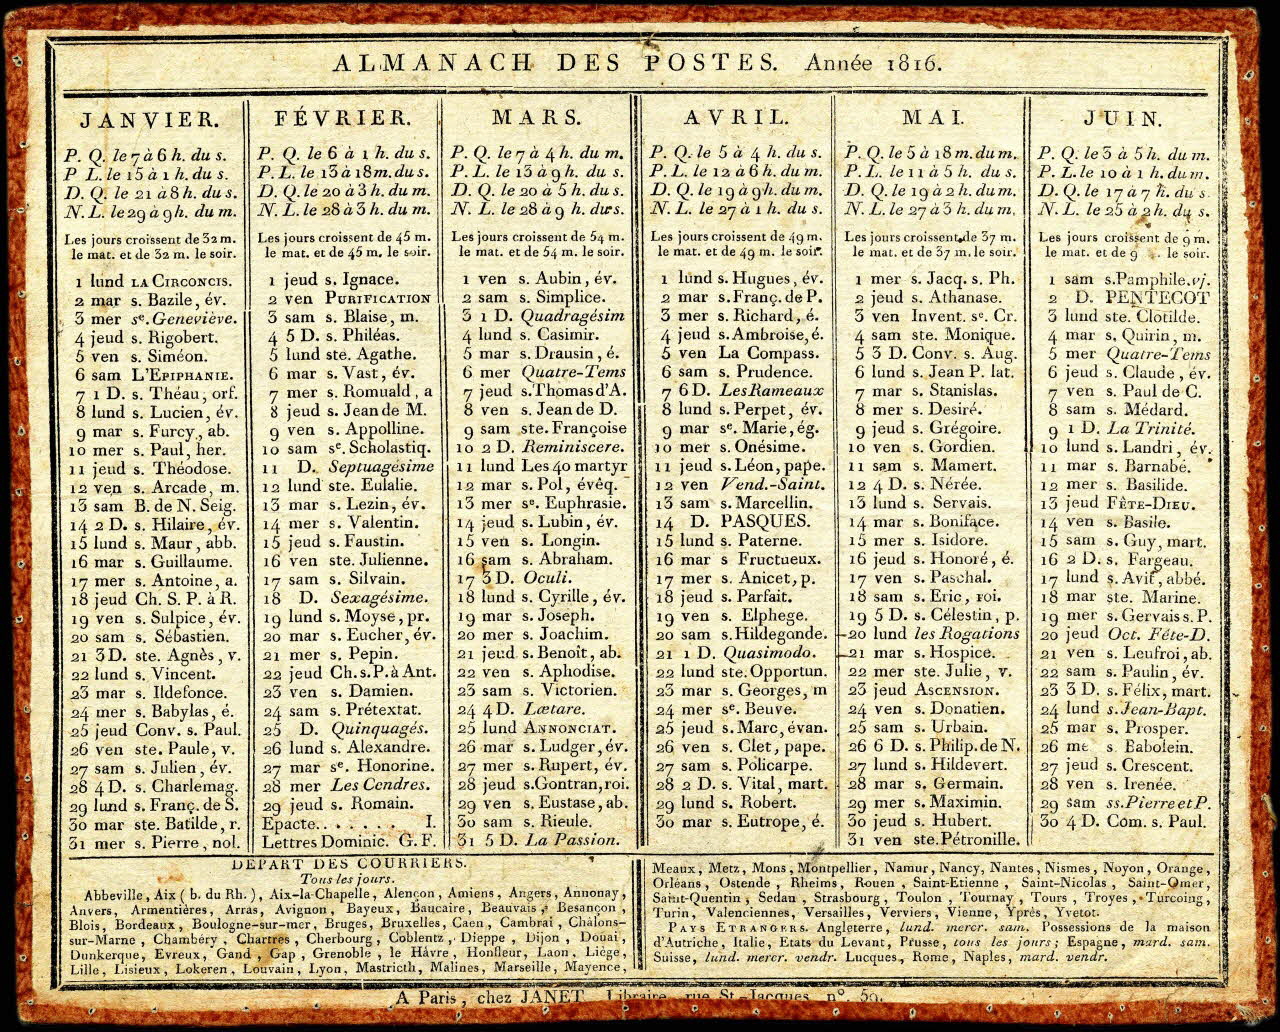 ALMANACH DES POSTES. Année 1816.
JANVIER.
P. Q. le 7 à 6 h. du s.
P L. le 15 à 1 h. du s.
D. Q. le 21 à 8h. du s.
N. L. le 29 à 9h. du m.
Les jours croissent de 32 m.
le mat. et de 32 m. le soir.
1 lund LA CIRCONCIS.
2 mar s. Bazile, év.
3 mer se. Geneviève.
4 jeud s. Rigobert.
5 ven s. Siméon.
6 sam L'EPIPHANIE.
7 1 D. s. Théau, orf.
8 lund s. Lucien, év.
9 mar s. Furcy, ab.
10 mer s. Paul, her.
11 jeud s. Théodose.
12 ven s. Arcade, m.
13 sam B. de N. Seig.
14 2 D. s. Hilaire, év.
15 lund s. Maur, abb.
16 mar s. Guillaume.
17 mer s. Antoine, a.
18 jeud Ch. S. P. à R.
19 ven s. Sulpice, év.
20 sam s. Sébastien.
21 3 D. ste. Agnès, v.
22 lund s. Vincent.
23 mar s. Ildefonce.
24 mer s. Babylas, é.
25 jeud Conv. s. Paul.
26 ven ste. Paule, v.
27 sam s. Julien, év.
28 4 D. s. Charlemag.
29 lund s. Franç. de S.
30 mar ste. Batilde, r.
31 mer s. Pierre, nol.
FÉVRIER.
P. Q. le 6 à 1 h. du s.
P. L. le 13 à 18 m. du s.
D. Q. le 20 à 3 h. du m.
N. L. le 28 à 3 h. du m.
Les jours croissent de 45 m.
le mat. et de 45 m. le soir.
1 jeud s. Ignace.
2 ven PURIFICATION
3 sam s. Blaise, m.
4 5 D. s. Philéas.
5 lund ste. Agathe.
6 mar s. Vast, év.
7 mer s. Romuald, a
8 jeud s. Jean de M.
9 ven s. Appolline.
10 sam se. Scholastiq.
11 D. Septuagésime
12 lund ste. Eulalie.
13 mar s. Lezin, év.
14 mer s. Valentin.
15 jeud s. Faustin.
16 ven ste. Julienne.
17 sam s. Silvain.
18 D. Sexagésime.
19 lund s. Moyse, pr.
20 mar s. Eucher, év.
21 mer s. Pepin.
22 jeud Ch. s. P. à Ant.
23 ven s. Damien.
24 sam s. Prétextat.
25 D. Quinquagés.
26 lund s. Alexandre.
27 mar se. Honorine.
28 mer Les Cendres.
29 jeud s. Romain.
Epacte. . . . . . . I.
Lettres Dominic. G. F.
MARS.
P. Q. le 7 à 4 h. du m.
P. L. le 13 à 9 h. du s.
D. Q. le 20 à 5 h. du s.
N. L. le 28 à 9 h. du s.
Les jours croissent de 54 m.
le mat. et de 54 m. le soir.
1 ven s. Aubin, év.
2 sam s. Simplice.
3 1 D. Quadragésim
4 lund s. Casimir.
5 mar s. Drausin, é.
6 mer Quatre-Tems
7 jeud s. Thomas d'A.
8 ven s. Jean de D.
9 sam ste. Françoise
10 2 D. Reminiscere.
11 lund Les 40 martyr
12 mar s. Pol, évêq.
13 mer se. Euphrasie.
14 jeud s. Lubin, év.
15 ven s. Longin.
16 sam s. Abraham.
17 3 D. Oculi.
18 lund s. Cyrille, év.
19 mar s. Joseph.
20 mer s. Joachim.
21 jeud s. Benoit, ab.
22 ven s. Aphodise.
23 sam s. Victorien.
24 4 D. Lætare.
25 lund ANNONCIAT.
26 mar s. Ludger, év.
27 mer s. Rupert, év.
28 jeud s. Gontran, roi.
29 ven s. Eustase, ab.
30 sam s. Rieule.
31 5 D. La Passion.
AVRIL.
P. Q. le 5 à 4 h. du s.
P. L. le 12 à 6 h. du m.
D. Q. le 19 à 9 h. du m.
N. L. le 27 à 1 h. du s.
Les jours croissent de 49 m.
le mat. et de 49 m. le soir.
1 lund s. Hugues, év.
2 mar s. Franç. de P.
3 mer s. Richard, é.
4 jeud s. Ambroise, é.
5 ven La Compass.
6 sam s. Prudence.
7 6 D. Les Rameaux
8 lund s. Perpet, év.
9 mar se. Marie, ég.
10 mer s. Onésime.
11 jeud s. Léon, pape.
12 ven Vend.-Saint.
13 sam s. Marcellin.
14 D. PASQUES.
15 lund s. Paterne.
16 mar s Fructueux.
17 mer s. Anicet, p.
18 jeud s. Parfait.
19 ven s. Elphege.
20 sam s. Hildegonde.
21 1 D. Quasimodo.
22 lund ste. Opportun.
23 mar s. Georges, m
24 mer se. Beuve.
25 jeud s. Marc, évan.
26 ven s. Clet, pape.
27 sam s. Policarpe.
28 2 D. s. Vital, mart.
29 lund s. Robert.
30 mar s. Eutrope, é.
MAI.
P. Q. le 5 à 18 m. du m.
P. L. le 11 à 5 h. du s.
D. Q. le 19 à 2 h. du m.
N. L. le 27 à 3 h. du m.
Les jours croissent de 37 m.
le mat. et de 37 m. le soir.
1 mer s. Jacq. s. Ph.
2 jeud s. Athanase.
3 ven Invent. se. Cr.
4 sam ste. Monique.
5 3 D. Conv. s. Aug.
6 lund s. Jean P. lat.
7 mar s. Stanislas.
8 mer s. Desiré.
9 jeud s. Grégoire.
10 ven s. Gordien.
11 sam s. Mamert.
12 4 D. s. Nérée.
13 lund s. Servais.
14 mar s. Boniface.
15 mer s. Isidore.
16 jeud s. Honoré, é.
17 ven s. Paschal.
18 sam s. Eric, roi.
19 5 D. s. Célestin, p.
20 lund les Rogations
21 mar s. Hospice.
22 mer ste. Julie, v.
23 jeud ASCENSION.
24 ven s. Donatien.
25 sam s. Urbain.
26 6 D. s. Philip. de N.
27 lund s. Hildevert.
28 mar s. Germain.
29 mer s. Maximin.
30 jeud s. Hubert.
31 ven ste. Pétronille.
JUIN.
P. Q. le 3 à 5 h. du m.
P. L. le 10 à 1 h. du m.
D. Q. le 17 à 7 h. du s
N. L. le 25 à 2 h. du s.
Les jours croissent de 9 m.
le mat. et de 9 . le soir.
1 sam s. Pamphile. vj.
2 D. PENTECOT
3 lund ste. Clotilde.
4 mar s. Quirin, m.
5 mer Quatre-Tems
6 jeud s. Claude, év.
7 ven s. Paul de C.
8 sam s. Médard.
9 1 D. La Trinité.
10 lund s. Landri, év.
11 mar s. Barnabé.
12 mer s. Basilide.
13 jeud FÊTE-DIEU.
14 ven s. Basile.
15 sam s. Guy, mart.
16 2 D. s. Fargeau.
17 lund s. Avit, abbé.
18 mar ste. Marine.
19 mer s. Gervais s. P.
20 jeud Oct. Féte-D.
21 ven s. Leufroi, ab.
22 sam s. Paulin, év.
23 3 D. s. Félix, mart.
24 lund s. Jean-Bapt.
25 mar s. Prosper.
26 me s Babolein.
27 jeud s. Crescent.
28 ven s. Irenée.
29 sam ss. Pierre et P.
30 4 D. Com. s. Paul.
DEPART DES COURRIERS.
Tous les jours.
Abbeville, Aix ( b. du Rh. ), Aix-la-Chapelle, Alençon, Amiens, Angers, Annonay,
Anvers, Armentières, Arras, Avignon, Bayeux, Baucaire, Beauvais, Besançon,
Blois, Bordeaux, Boulogne-sur-mer, Bruges, Bruxelles, Caen, Cambrai, Châlons-
sur-Marne, Chambéry, Chartres, Cherbourg, Coblentz, Dieppe, Dijon, Douai,
Dunkerque, Evreux, Gand, Gap, Grenoble, le Hâvre, Honfleur, Laon, Liège,
Lille, Lisieux, Lokeren, Louvain, Lyon, Mastricth, Malines, Marseille, Mayence,
Meaux, Metz, Mons, Montpellier, Namur, Nancy, Nantes, Nismes, Noyon, Orange,
Orléans, Ostende, Rheims, Rouen, Saint-Etienne, Saint-Nicolas, Saint-Omer,
Saint-Quentin, Sedan, Strasbourg, Toulon, Tournay, Tours, Troyes, Turcoing,
Turin, Valenciennes, Versailles, Verviers, Vienne, Yprès, Yvetot.
PAYS ETRANGERS. Angleterre, lund. mercr. sam. Possessions de la maison
d'Autriche, Italie, Etats du Levant, Prusse, tous les jours; Espagne, mard. sam.
Suisse, lund. mercr. vendr. Lucques, Rome, Naples, mard. vendr.
A Paris, chez JANET, Libraire, rue St-Jacques, n°. 59.